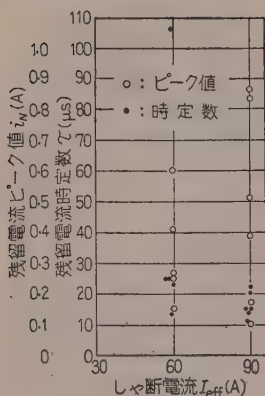 残留電流ピーク値 iN(A)
1.0
0.9
0.8
0.7
0.6
0.5
0.4
0.3
0.2
0.1
0
残留電流時定数 τ(μs)
110
100
90
80
70
60
50
40
30
20
10
○：ピーク値
•：時定数
30 60 90
しゃ断電流 Ieff(A)